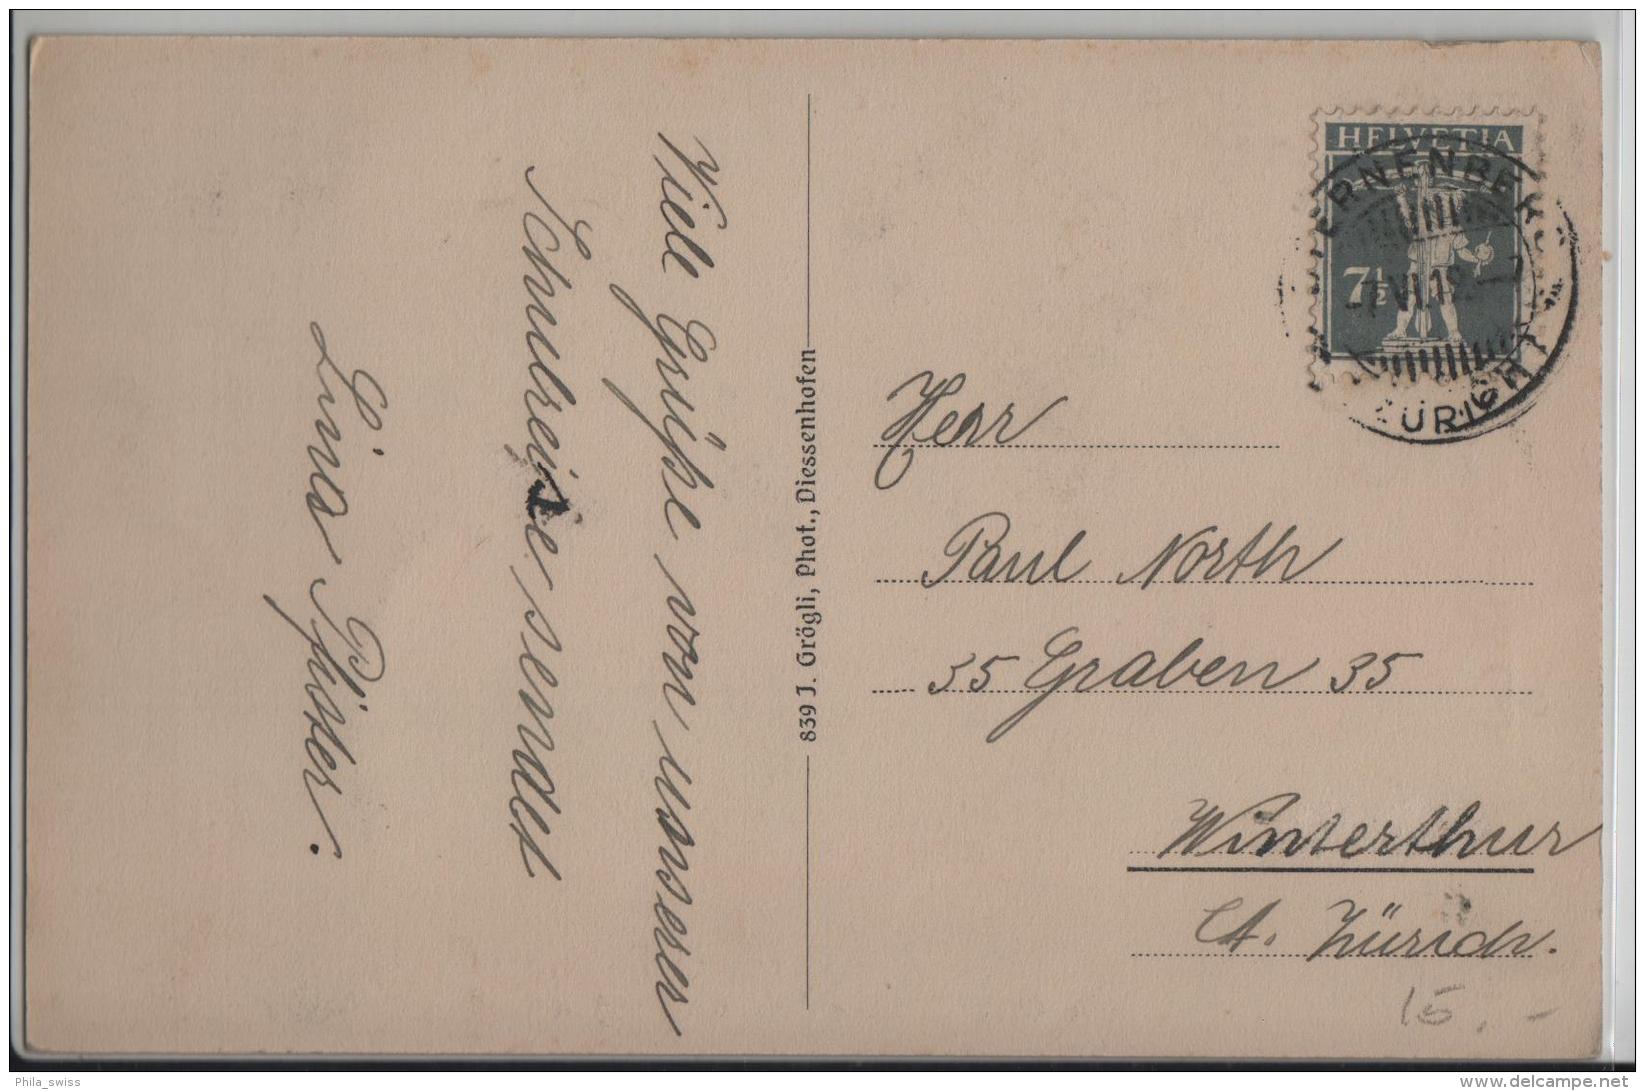 Viele Grüße von unserer
Schulreise sendet
Lina Pfister.
839 J. Grögli, Phot., Diessenhofen
HELVETIA
7½
ERNENBERG
-7.VI.19
ZÜRICH
Herr
Paul North
35 Graben 35
Winterthur
Ct. Zürich.
15.-
Phila_swiss
delcampe.net